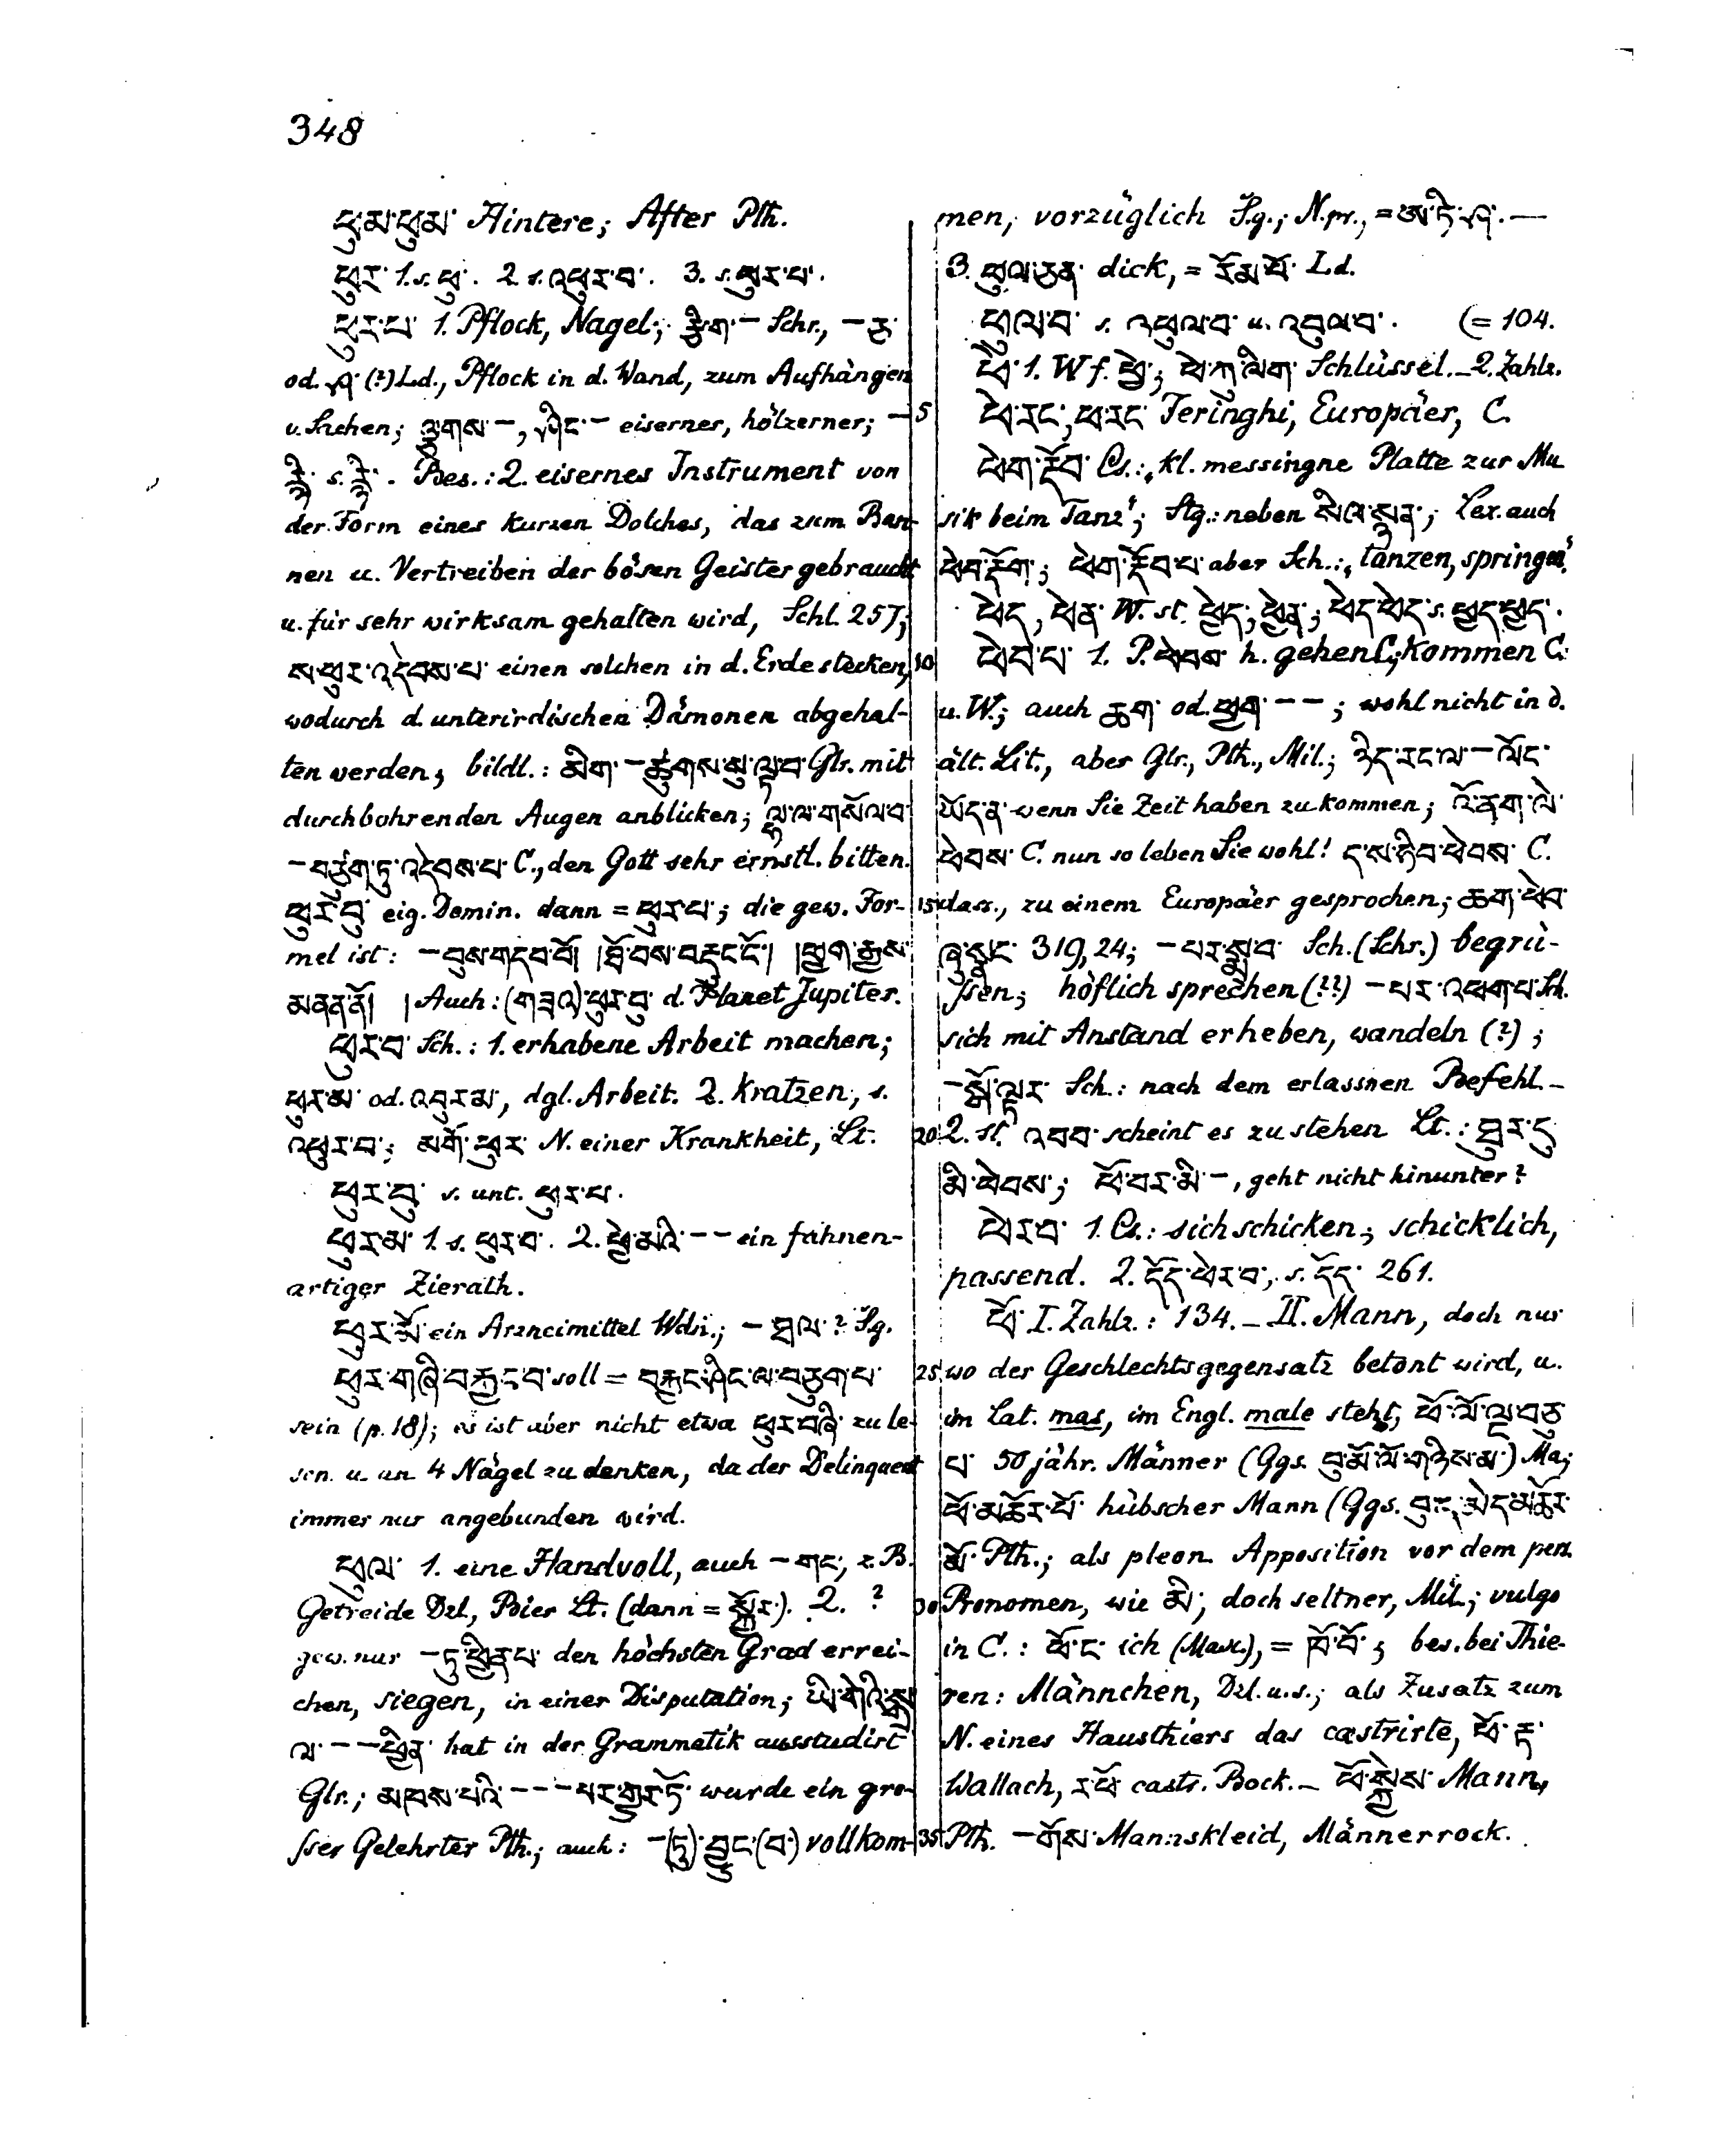 348
ཕུ་མ་ཕུམ་ Hintere; After Pth.
ཕུར་ 1. s. ཕུ་. 2. s. འཕུར་བ་. 3. s. ཕུར་པ་.
ཕུར་པ་ 1. Pflock, Nagel; རྩིག་ – Schr., –
od. (?) Ld., Pflock in d. Wand, zum Aufhängen
v. Sachen; ལྕགས་ –, ཤིང་ – eiserner, hölzerner; –
s. Bes.: 2. eisernes Instrument von
der Form eines kurzen Dolches, das zum Ban-
nen u. Vertreiben der bösen Geister gebraucht
u. für sehr wirksam gehalten wird, Schl. 257;
ས་ཕུར་འདེབས་པ་ einen solchen in d. Erde stecken,
wodurch d. unterirdischen Dämonen abgehal-
ten werden, bildl.: མིག་ – ཚུགས་སུ་ལྟ་བ་ Glr. mit
durchbohrenden Augen anblicken; ལྷ་ལ་གསོལ་བ་
– བཙུག་ཏུ་འདེབས་པ་ C., den Gott sehr ernstl. bitten.
ཕུར་བུ་ eig. Demin. dann = ཕུར་པ་; die gew. For-
mel ist: – བུས་གདབ་བོ། །ཐོ་བས་བརྡུང་ངོ༌། །ཕྱག་རྒྱས་
མནན་ནོ། | Auch: (གཟའ་) ཕུར་བུ་ d. Planet Jupiter.
ཕུར་བ་ Sch.: 1. erhabene Arbeit machen;
ཕུར་མ་ od. འབུར་མ་, dgl. Arbeit. 2. kratzen, s.
འཕུར་བ་; མགོ་ཕུར་ N. einer Krankheit, Lt.
ཕུར་བུ་ s. unt. ཕུར་པ་.
ཕུར་མ་ 1. s. ཕུར་བ་. 2. ཕྱེ་མའི་ – – ein fahnen-
artiger Zierath.
ཕུར་མོ་ ein Arzneimittel Wdn.; – ཐལ་? S.g.
ཕུར་གཞི་བརྐྱང་བ་ soll = བརྐྱང་ཤིང་ལ་བཙུག་པ་
sein (p. 18); es ist aber nicht etwa ཕུར་བཞི་ zu le-
sen u. an 4 Nägel zu denken, da der Delinquent
immer nur angebunden wird.
ཕུལ་ 1. eine Handvoll, auch – གང་, z. B.
Getreide Dzl., Bier Lt. (dann = སྐྱོར་). 2. ?
gew. nur – ཏུ་ཕྱིན་པ་ den höchsten Grad errei-
chen, siegen, in einer Disputation; ཡི་གེའི་སྒྲ་
ལ་ – – ཕྱིན་ hat in der Grammatik ausstudirt
Glr.; མཁས་པའི་ – – – པར་གྱུར་ཏོ་ wurde ein gro-
sser Gelehrter Pth.; auch: – (ཏུ)་བྱུང་(བ་) vollkom-
men, vorzüglich S.g.; N.pr., =
3. ཕུལ་ཅན་ dick, = རོམ་པོ་ Ld.
ཕུལ་བ་ s. འཕུལ་བ་ u. འབུལ་བ་. (= 104.
ཕེ་ 1. W f. ཕྱེ་; ཕེ་ཀ་ལིག་ Schlüssel. – 2. Zahlz.
5 ཕེ་རང་, ཕ་རང་ Feringhi, Europäer, C.
ཕེག་རྡོབ་ Cs.: „kl. messingne Platte zur Mu
sik beim Tanz‟; Stg.: neben སིལ་སྙན་; Lex. auch
ཕེབ་རྡོག་; ཕེག་རྡོབ་པ་ aber Sch.: „tanzen, springen‟.
ཕེད་, ཕེན་ W. st. ཕྱེད་, ཕྱེན་; ཕེད་ཕེད་ s. ཕྱད་ཕྱད་.
10 ཕེབ་པ་ 1. P. ཕེབས་ h. gehen C.; kommen C.
u. W.; auch ཆག་ od. ཕྱག་ – –; wohl nicht in d.
ält. Lit., aber Glr., Pth., Mil.; ཉིད་རང་ལ་ – ལོང་
ཡོད་ན་ wenn Sie Zeit haben zu kommen; འོ་ནག་ལེ་
ཕེབས་ C. nun so leben Sie wohl! ད་ས་ཧིབ་ཕེབས་ C.
15 dass., zu einem Europäer gesprochen; ཆག་ཕེབ་
ཞུ་སྣང་ 319, 24; – པར་སྨྲ་བ་ Sch. (Schr.) begrü-
ssen; höflich sprechen (??) – པར་འཕག་པ་ Sch.
sich mit Anstand erheben, wandeln (?);
– སྒོ་ལྟར་ Sch.: nach dem erlassnen Befehl. –
20 2. st. འབབ་ scheint es zu stehen Lt.: ཐུར་དུ་
མི་ཕེབས་; ཕོ་བར་མི་ –, geht nicht hinunter?
ཕེར་བ་ 1. Cs.: sich schicken; schicklich,
passend. 2. དོད་ཕེར་བ་, s. དོད་ 261.
ཕོ་ I. Zahlz.: 134. – II. Mann, doch nur
25 wo der Geschlechtsgegensatz betont wird, u.
im Lat. mas, im Engl. male steht, ཕོ་ལོ་ལྔ་བཅུ་
པ་ 50 jähr. Männer (Ggs. བུ་མོ་ལོ་གཉིས་མ་) Ma.;
ཕོ་མཆོར་པོ་ hübscher Mann (Ggs. བུད་མེད་མཆོར་
མོ་ Pth.; als pleon. Apposition vor dem pers.
30 Pronomen, wie མི་; doch seltner, Mil.; vulgo
in C.: ཕོ་ང་ ich (Masc.), = ཁོ་བོ་; bes. bei Thie-
ren: Männchen, Dzl. u.s.; als Zusatz zum
N. eines Hausthiers das castrirte, ཕོ་རྟ་
Wallach, ར་ཕོ་ castr. Bock. – ཕོ་སྐྱེས་ Mann,
35 Pth. – གོས་ Mannskleid, Männerrock.